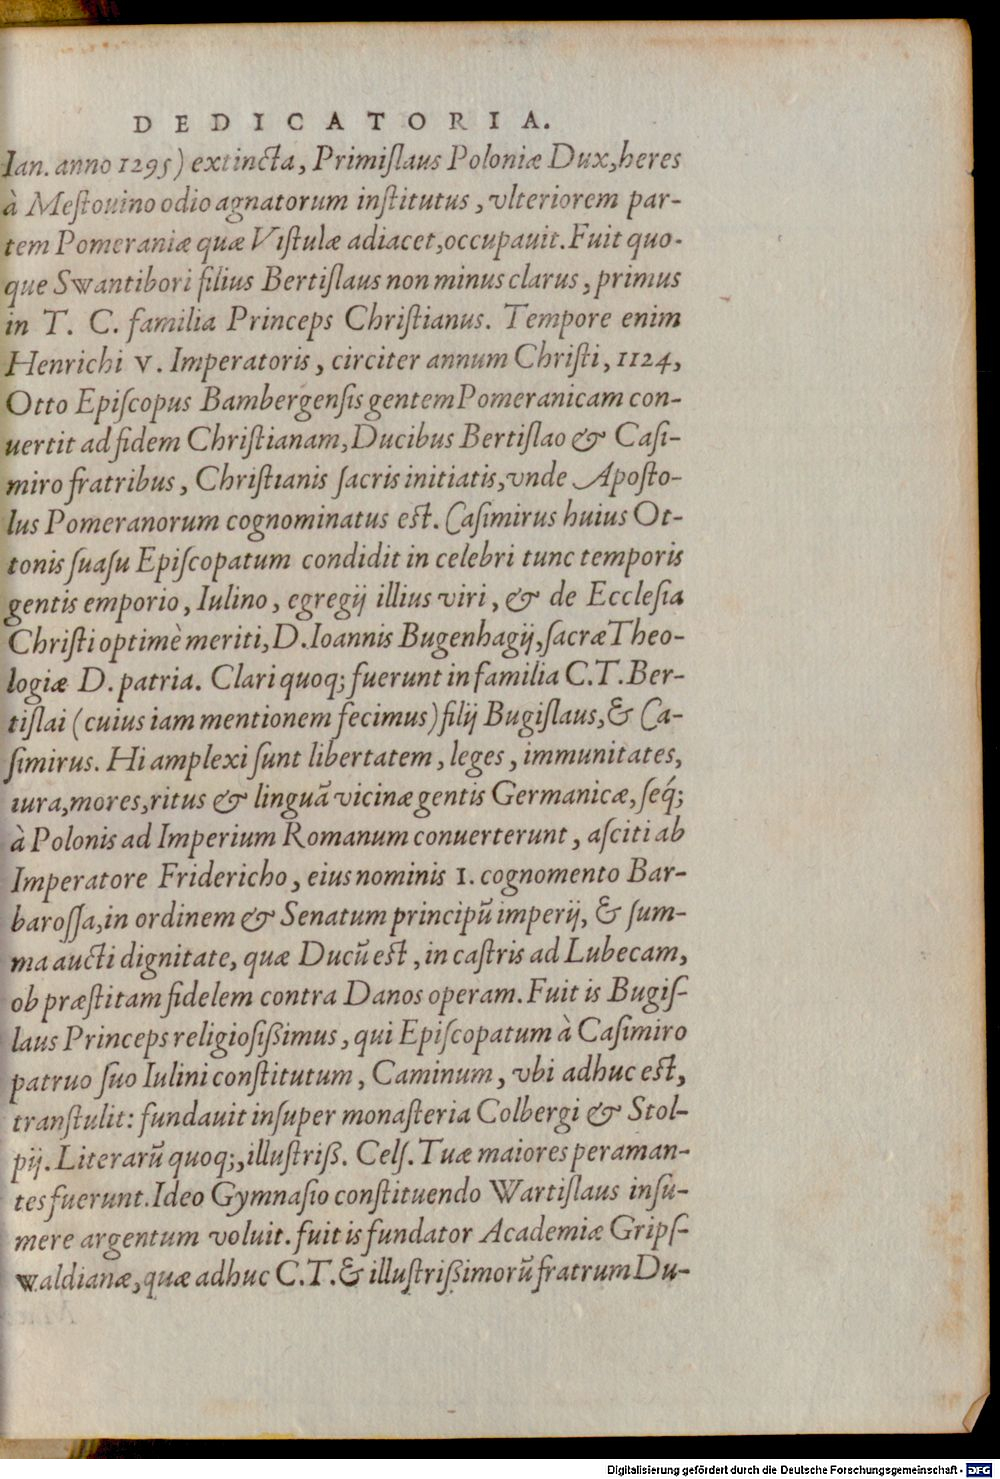 DEDICATORIA.
Ian. anno 1295) extincta, Primiſlaus Poloniæ Dux, heres
à Meſtouino odio agnatorum inſtitutus, vlteriorem par-
tem Pomeraniæ quæ Viſtulæ adiacet, occupauit. Fuit quo-
que Swantibori filius Bertiſlaus non minus clarus, primus
in T. C. familia Princeps Chriſtianus. Tempore enim
Henrichi V. Imperatoris, circiter annum Chriſti, 1124,
Otto Epiſcopus Bambergenſis gentem Pomeranicam con-
uertit ad fidem Chriſtianam, Ducibus Bertiſlao & Caſi-
miro fratribus, Chriſtianis ſacris initiatis, vnde Apoſto-
lus Pomeranorum cognominatus eſt. Caſimirus huius Ot-
tonis ſuaſu Epiſcopatum condidit in celebri tunc temporis
gentis emporio, Iulino, egregij illius viri, & de Eccleſia
Chriſti optimè meriti, D. Ioannis Bugenhagij, ſacræ Theo-
logiæ D. patria. Clari quoq; fuerunt in familia C. T. Ber-
tiſlai (cuius iam mentionem fecimus) filij Bugiſlaus, & Ca-
ſimirus. Hi amplexi ſunt libertatem, leges, immunitates,
iura, mores, ritus & linguã vicinæ gentis Germanicæ, ſéq;
à Polonis ad Imperium Romanum conuerterunt, aſciti ab
Imperatore Fridericho, eius nominis I. cognomento Bar-
baroſſa, in ordinem & Senatum principũ imperij, & ſum-
ma aucti dignitate, quæ Ducũ eſt, in caſtris ad Lubecam,
ob præſtitam fidelem contra Danos operam. Fuit is Bugiſ-
laus Princeps religioſißimus, qui Epiſcopatum à Caſimiro
patruo ſuo Iulini conſtitutum, Caminum, vbi adhuc eſt,
tranſtulit: fundauit inſuper monaſteria Colbergi & Stol-
pij. Literarũ quoq;, illuſtriß. Celſ. Tuæ maiores peraman-
tes fuerunt. Ideo Gymnaſio conſtituendo Wartiſlaus inſu-
mere argentum voluit. fuit is fundator Academiæ Gripſ-
waldianæ, quæ adhuc C. T. & illuſtrißimorũ fratrum Du-
Digitalisierung gefördert durch die Deutsche Forschungsgemeinschaft - DFG